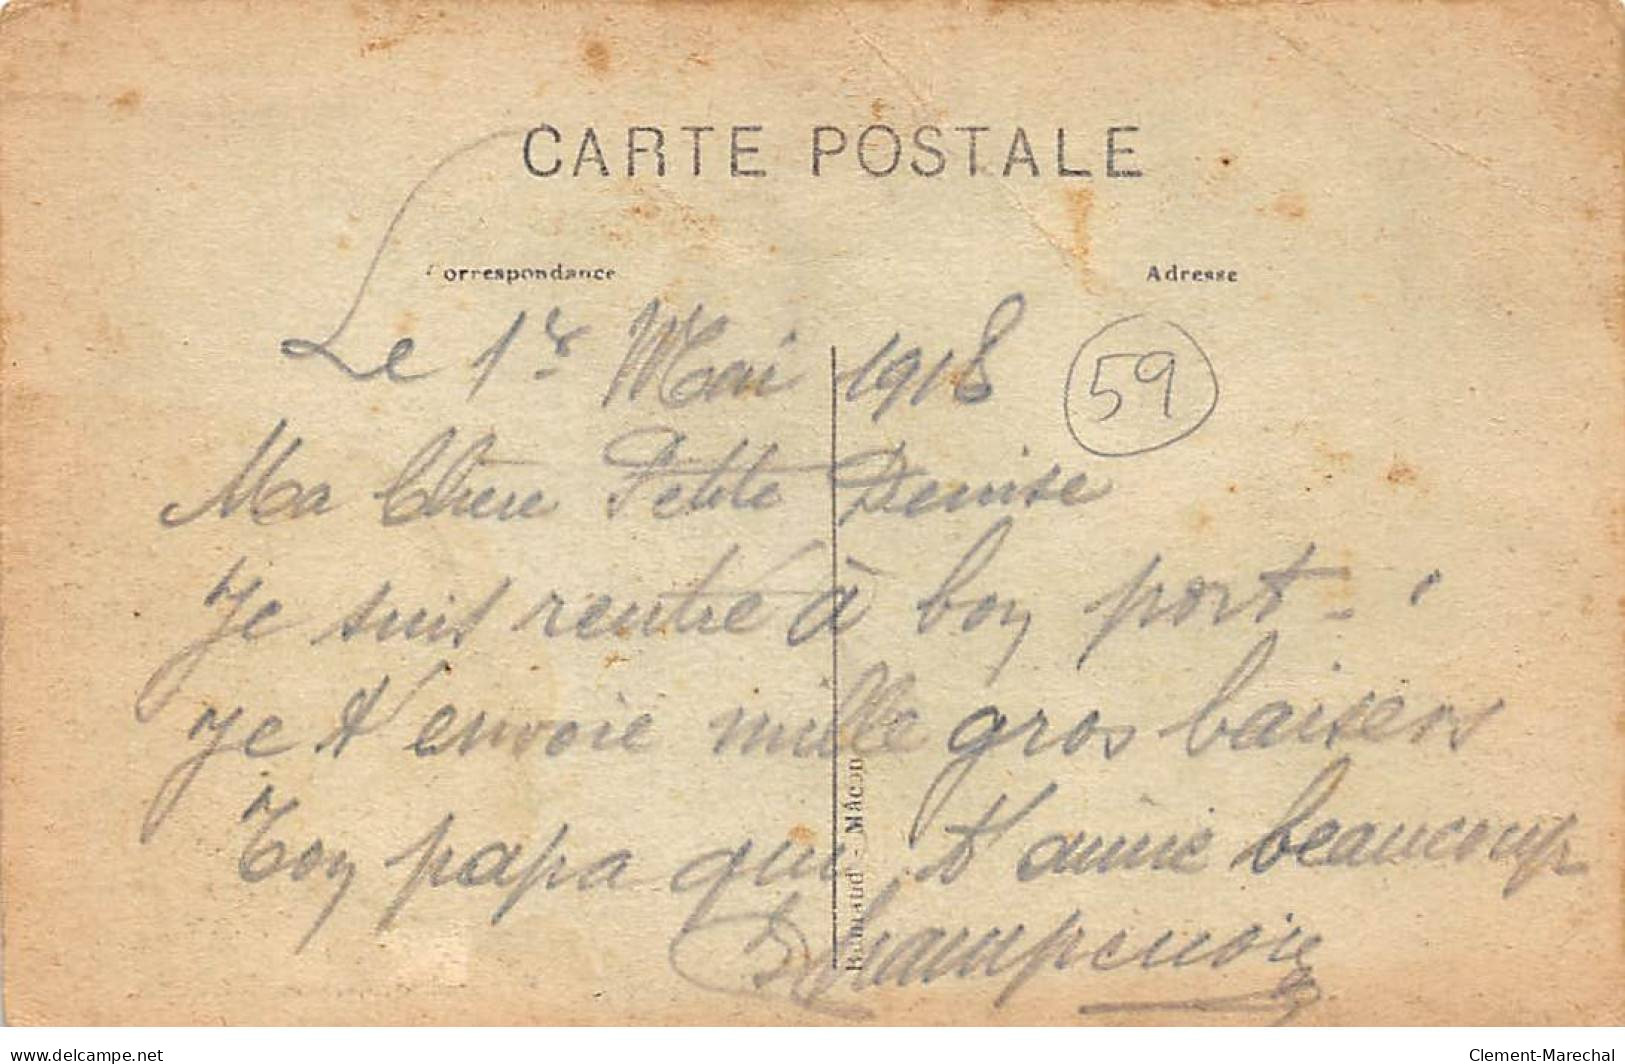 CARTE POSTALE
Correspondance
Adresse
Le 1er Mai 1918
59
Ma Chere Petite Denise
Je suis rentré à bon port -
Je t'envoie mille gros baisers
Ton papa qui t'aime beaucoup
Champenois
- Mâcon
www.delcampe.net
Clement-Marechal